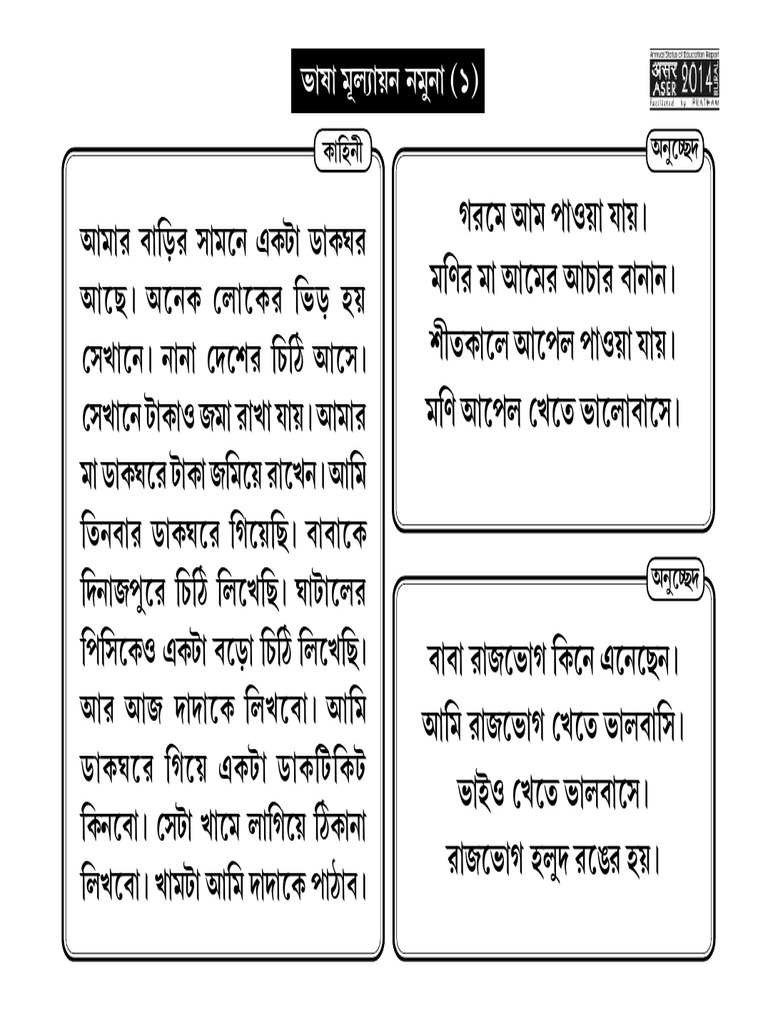 ভাষা মূল্যায়ন নমুনা (১)
Annual Status of Education Report
असर
ASER
2014
RURAL
Facilitated by PRATHAM
কাহিনী
আমার বাড়ির সামনে একটা ডাকঘর
আছে। অনেক লোকের ভিড় হয়
সেখানে। নানা দেশের চিঠি আসে।
সেখানে টাকাও জমা রাখা যায়। আমার
মা ডাকঘরে টাকা জমিয়ে রাখেন। আমি
তিনবার ডাকঘরে গিয়েছি। বাবাকে
দিনাজপুরে চিঠি লিখেছি। ঘাটালের
পিসিকেও একটা বড়ো চিঠি লিখেছি।
আর আজ দাদাকে লিখবো। আমি
ডাকঘরে গিয়ে একটা ডাকটিকিট
কিনবো। সেটা খামে লাগিয়ে ঠিকানা
লিখবো। খামটা আমি দাদাকে পাঠাব।
অনুচ্ছেদ
গরমে আম পাওয়া যায়।
মণির মা আমের আচার বানান।
শীতকালে আপেল পাওয়া যায়।
মণি আপেল খেতে ভালোবাসে।
অনুচ্ছেদ
বাবা রাজভোগ কিনে এনেছেন।
আমি রাজভোগ খেতে ভালবাসি।
ভাইও খেতে ভালবাসে।
রাজভোগ হলুদ রঙের হয়।